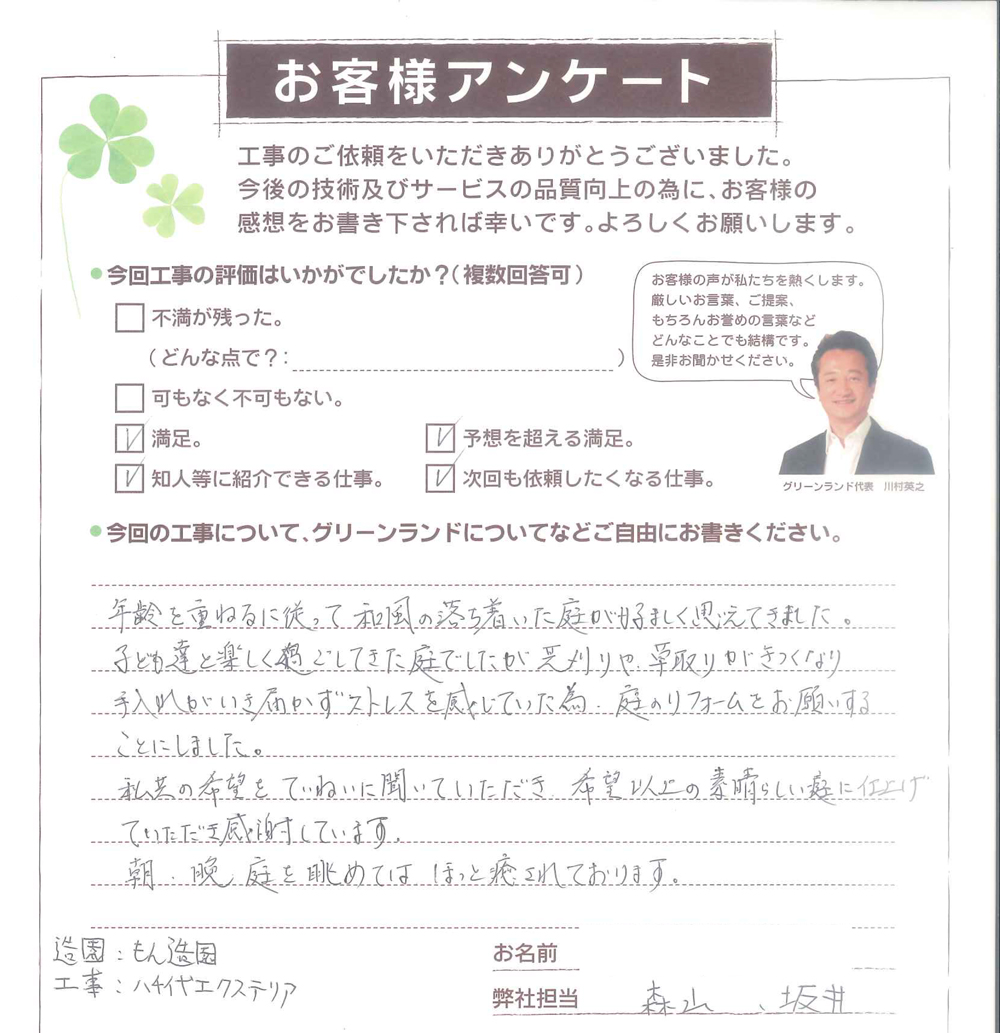 お客様アンケート
工事のご依頼をいただきありがとうございました。
今後の技術及びサービスの品質向上の為に、お客様の
感想をお書き下されば幸いです。よろしくお願いします。
●今回工事の評価はいかがでしたか？（複数回答可）
不満が残った。
（どんな点で？：　　　）
可もなく不可もない。
満足。
予想を超える満足。
知人等に紹介できる仕事。
次回も依頼したくなる仕事。
お客様の声が私たちを熱くします。
厳しいお言葉、ご提案、
もちろんお誉めの言葉など
どんなことでも結構です。
是非お聞かせください。
グリーンランド代表　川村英之
●今回の工事について、グリーンランドについてなどご自由にお書きください。
年齢を重ねるに従って和風の落ち着いた庭が好ましく思えてきました。
子ども達と楽しく過ごしてきた庭でしたが芝刈りや草取りがきつくなり
手入れがいき届かずストレスを感じていた為、庭のリフォームをお願いする
ことにしました。
私共の希望をていねいに聞いていただき、希望以上の素晴らしい庭に仕上げ
ていただき感謝しています。
朝、晩、庭を眺めてはほっと癒されております。
造園：もん造園
工事：ハチイヤエクステリア
お名前
弊社担当　森山、坂井